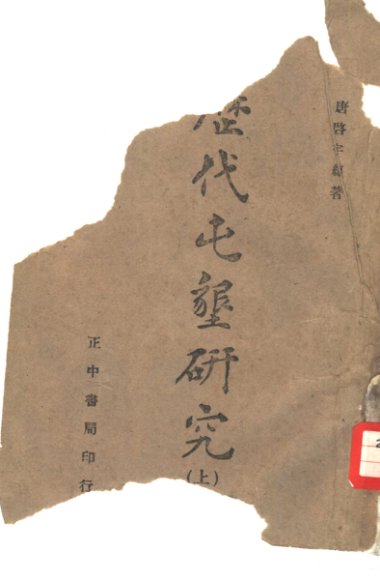 唐啓宇編著
歷代屯墾研究
(上)
正中書局印行